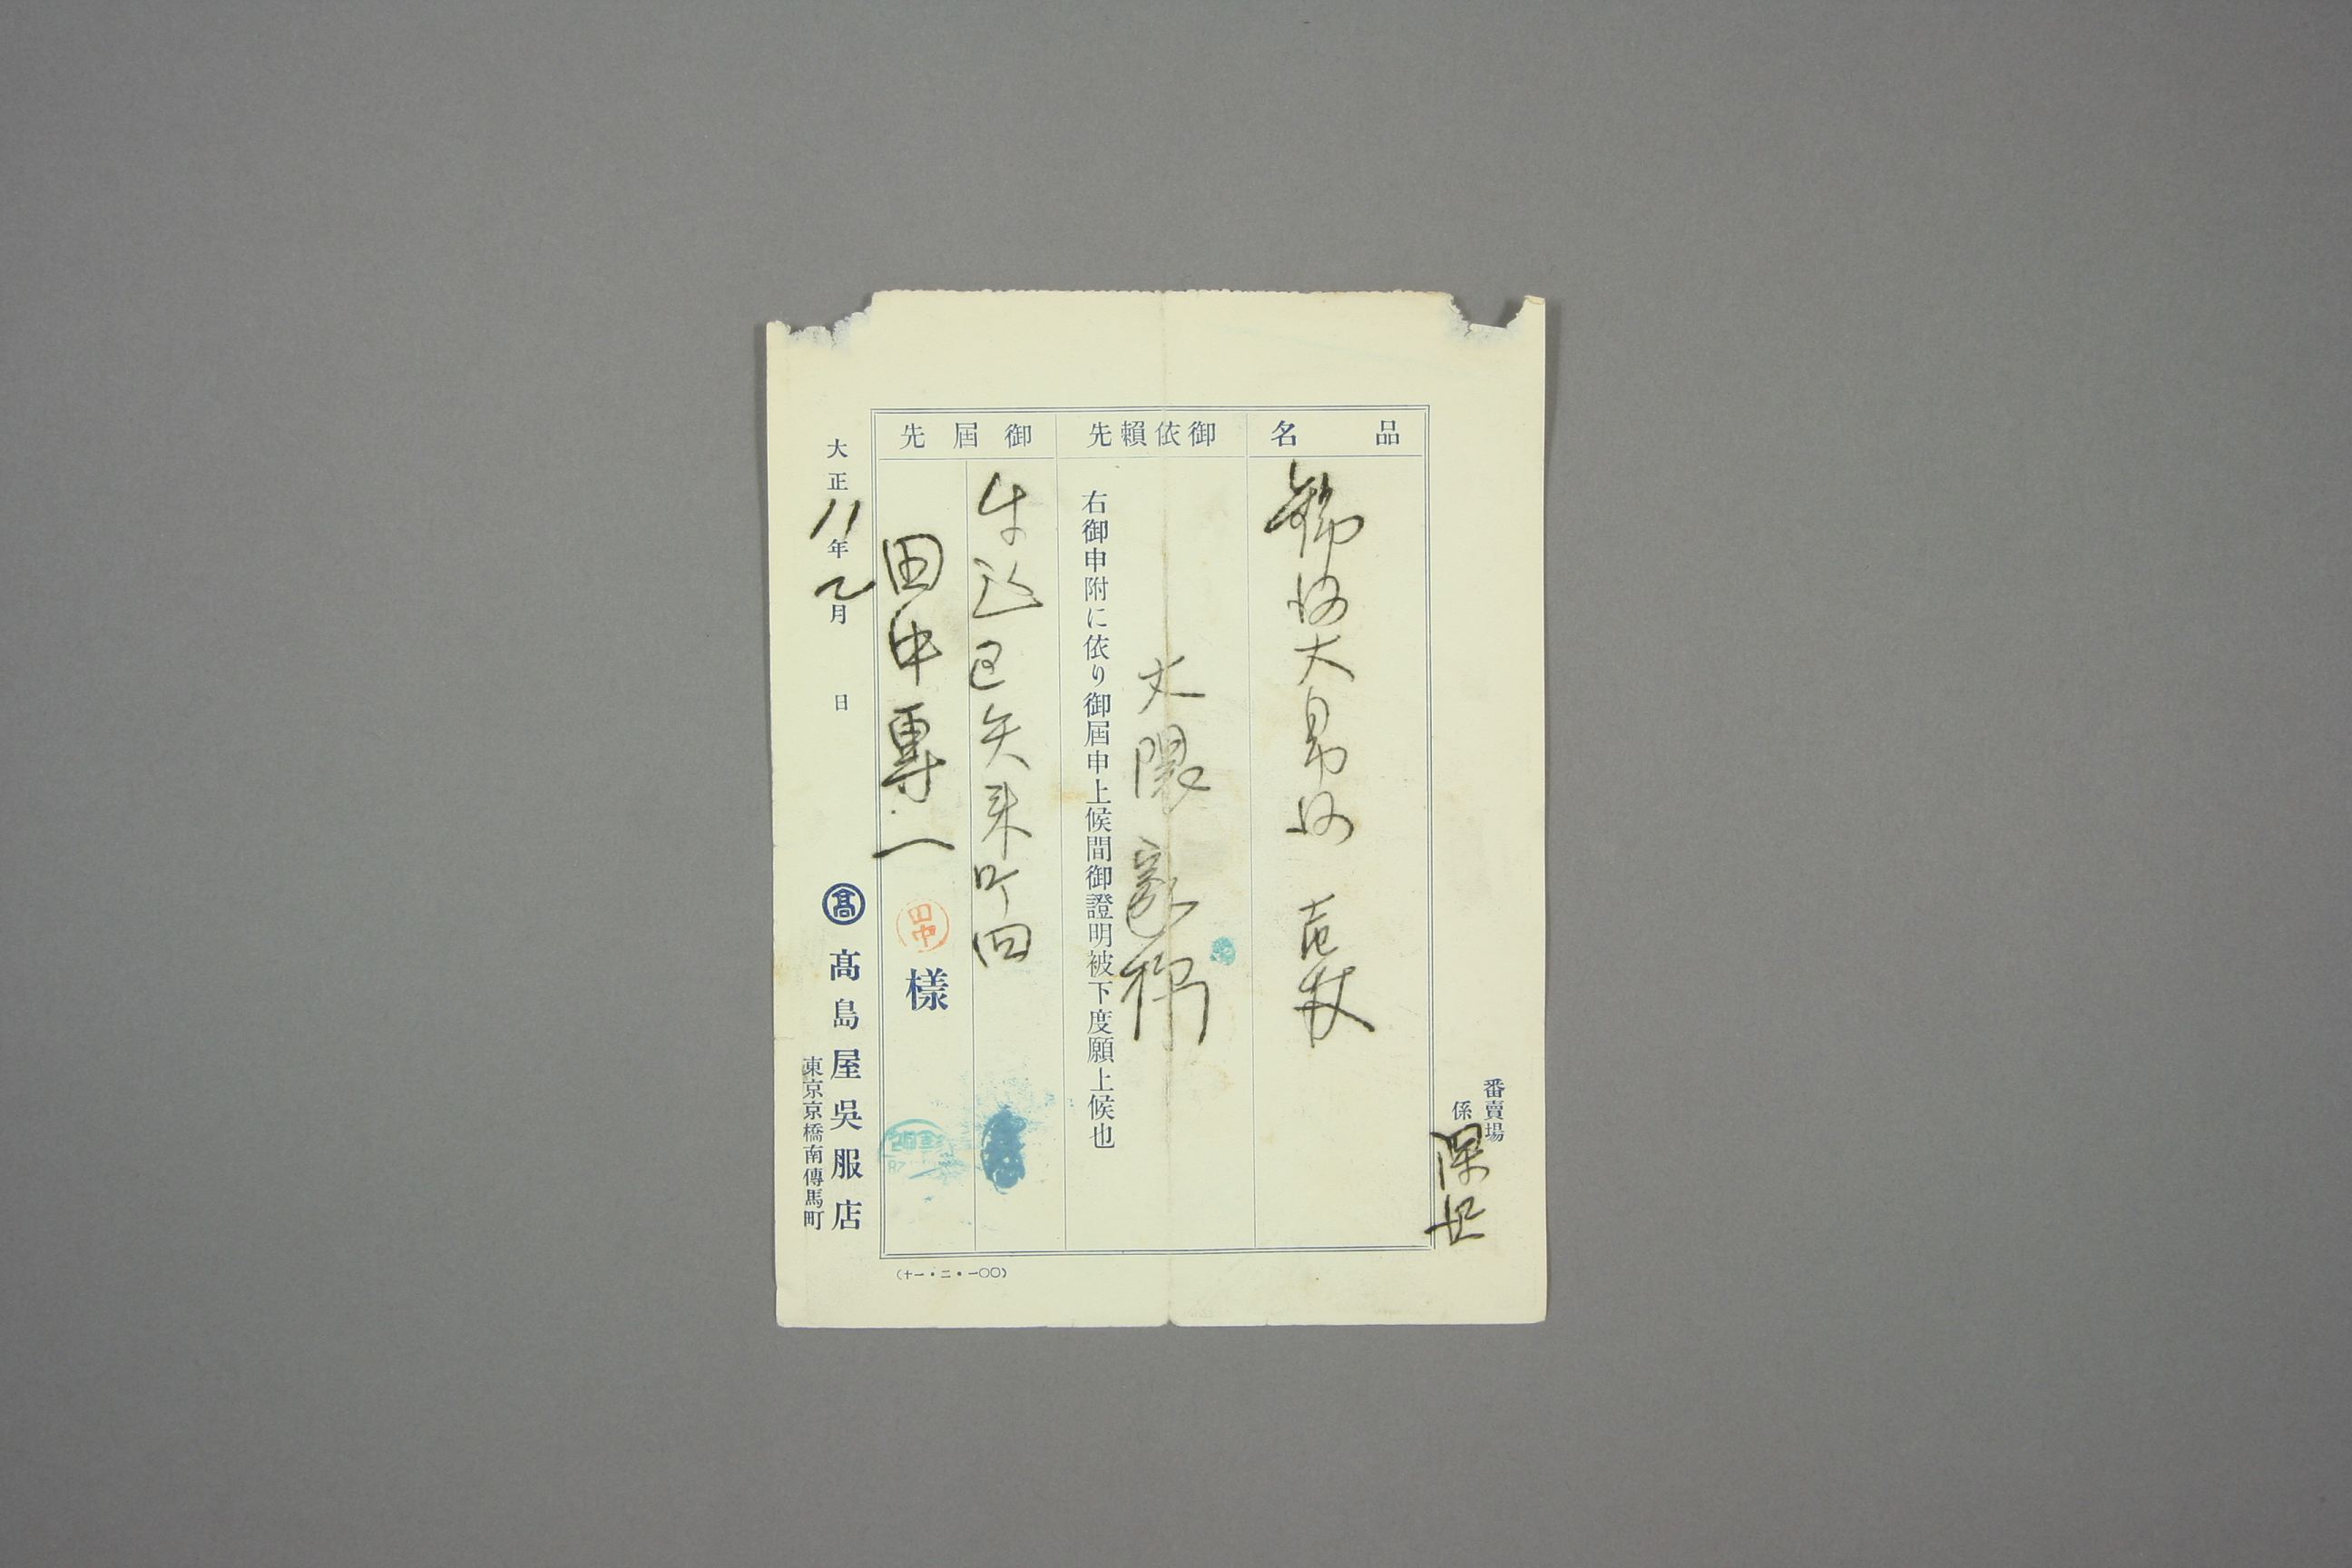 番賣場
係
品名
御依賴先
大隈家様
右御申附に依り御屆申上候間御證明被下度願上候也
御屆先
牛込区矢来町四
田中専一
田中
樣
大正11年2月 日
髙
髙島屋吳服店
東京京橋南傳馬町
(十一・二・一〇〇)